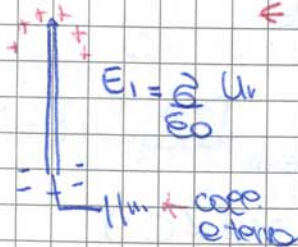 E₁ = σ/ε₀ Ur
← coll
a terra